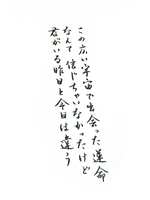 この広い宇宙で出会った運命
なんて信じちゃいなかったけど
君がいる昨日と今日は違う